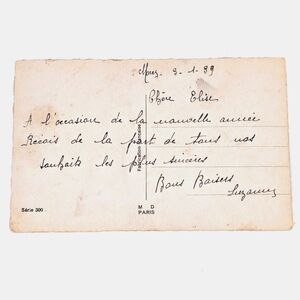 8-1-89
Chère Elise
A l'occasion de la nouvelle année
Reçois de la part de tous nos
souhaits les plus sincères
Bons Baisers
Suzanne
Série 300
M D
PARIS